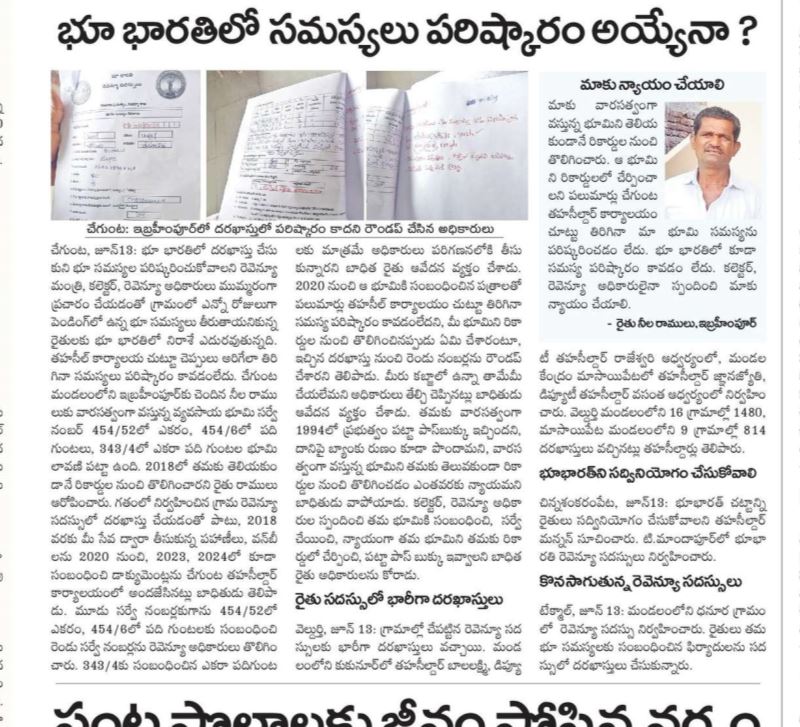 భూ భారతిలో సమస్యలు పరిష్కారం అయ్యేనా ?
చేగుంట: ఇబ్రహీంపూర్‌లో దరఖాస్తులో పరిష్కారం కాదని రౌండప్ చేసిన అధికారులు
చేగుంట, జూన్13: భూ భారతిలో దరఖాస్తు చేసు
కుని భూ సమస్యల పరిష్కరించుకోవాలని రెవెన్యూ
మంత్రి, కలెక్టర్, రెవెన్యూ అధికారులు ముమ్మరంగా
ప్రచారం చేయడంతో గ్రామంలో ఎన్నో రోజులుగా
పెండింగ్‌లో ఉన్న భూ సమస్యలు తీరుతాయనుకున్న
రైతులకు భూ భారతిలో నిరాశే ఎదురవుతున్నది.
తహసీల్ కార్యాలయ చుట్టూ చెప్పులు అరిగేలా తిరి
గినా సమస్యలు పరిష్కారం కావడంలేదు. చేగుంట
మండలంలోని ఇబ్రహీంపూర్‌కు చెందిన నీల రాము
లుకు వారసత్వంగా వస్తున్న వ్యవసాయ భూమి సర్వే
నంబర్ 454/52లో ఎకరం, 454/6లో పది
గుంటలు, 343/4లో ఎకరా పది గుంటల భూమి
లావణి పట్టా ఉంది. 2018లో తమకు తెలియకుం
డానే రికార్డుల నుంచి తొలిగించారని రైతు రాములు
ఆరోపించారు. గతంలో నిర్వహించిన గ్రామ రెవెన్యూ
సదస్సులో దరఖాస్తు చేయడంతో పాటు, 2018
వరకు మీ సేవ ద్వారా తీసుకున్న పహాణీలు, వన్‌బీ
లను 2020 నుంచి, 2023, 2024లో కూడా
సంబంధించి డాక్యుమెంట్లను చేగుంట తహసీల్దార్
కార్యాలయంలో అందజేసినట్లు బాధితుడు తెలిపా
డు. మూడు సర్వే నంబర్లకుగాను 454/52లో
ఎకరం, 454/6లో పది గుంటలకు సంబంధించి
రెండు సర్వే నంబర్లను రెవెన్యూ అధికారులు తొలగిం
చారు. 343/4కు సంబంధించిన ఎకరా పదిగుంట
లకు మాత్రమే అధికారులు పరిగణనలోకి తీసు
కున్నారని బాధిత రైతు ఆవేదన వ్యక్తం చేశాడు.
2020 నుంచి ఆ భూమికి సంబంధించిన పత్రాలతో
పలుమార్లు తహసీల్ కార్యాలయం చుట్టూ తిరిగినా
సమస్య పరిష్కారం కావడంలేదని, మీ భూమిని రికా
ర్డుల నుంచి తొలిగించినప్పుడు ఏమి చేశారంటూ,
ఇచ్చిన దరఖాస్తు నుంచి రెండు నంబర్లను రౌండప్
చేశారని తెలిపాడు. మీరు కబ్జాలో ఉన్నా తామేమీ
చేయలేమని అధికారులు తేల్చి చెప్పినట్లు బాధితుడు
ఆవేదన వ్యక్తం చేశాడు. తమకు వారసత్వంగా
1994లో ప్రభుత్వం పట్టా పాస్‌బుక్కు ఇచ్చిందని,
దానిపై బ్యాంకు రుణం కూడా పొందామని, వారస
త్వంగా వస్తున్న భూమిని తమకు తెలువకుండా రికా
ర్డుల నుంచి తొలిగించడం ఎంతవరకు న్యాయమని
బాధితుడు వాపోయాడు. కలెక్టర్, రెవెన్యూ అధికా
రుల స్పందించి తమ భూమికి సంబంధించి, సర్వే
చేయించి, న్యాయంగా తమ భూమిని తమకు రికా
ర్డులో చేర్పించి, పట్టా పాస్ బుక్కు ఇవ్వాలని బాధిత
రైతు అధికారులను కోరాడు.
రైతు సదస్సులో భారీగా దరఖాస్తులు
వెల్దుర్తి, జూన్ 13: గ్రామాల్లో చేపట్టిన రెవెన్యూ సద
స్సులకు భారీగా దరఖాస్తులు వచ్చాయి. మండ
లంలోని కుకునూర్‌లో తహసీల్దార్ బాలలక్ష్మి, డిప్యూ
మాకు న్యాయం చేయాలి
మాకు వారసత్వంగా
వస్తున్న భూమిని తెలియ
కుండానే రికార్డుల నుంచి
తొలిగించారు. ఆ భూమి
ని రికార్డులలో చేర్పించా
లని పలుమార్లు చేగుంట
తహసీల్దార్ కార్యాలయం
చూట్టు తిరిగినా మా భూమి సమస్యను
పరిష్కరించడం లేదు. భూ భారతిలో కూడా
సమస్య పరిష్కారం కావడం లేదు. కలెక్టర్,
రెవెన్యూ అధికారులైనా స్పందించి మాకు
న్యాయం చేయాలి.
- రైతు నీల రాములు,ఇబ్రహీంపూర్
టీ తహసీల్దార్ రాజేశ్వరి అధ్వర్యంలో, మండల
కేంద్రం మాసాయిపేటలో తహసీల్దార్ జ్ఞానజ్యోతి,
డిప్యూటీ తహసీల్దార్ వసంత ఆధ్వర్యంలో నిర్వహిం
చారు. వెల్దుర్తి మండలంలోని 16 గ్రామాల్లో 1480,
మాసాయిపేట మండలంలోని 9 గ్రామాల్లో 814
దరఖాస్తులు వచ్చినట్లు తహసీల్దార్లు తెలిపారు.
భూభారత్‌ని సద్వినియోగం చేసుకోవాలి
చిన్నశంకరంపేట, జూన్13: భూభారత్ చట్టాన్ని
రైతులు సద్వినియోగం చేసుకోవాలని తహసీల్దార్
మన్నన్ సూచించారు. టి.మాందాపూర్‌లో భూభా
రతి రెవెన్యూ సదస్సులు నిర్వహించారు.
కొనసాగుతున్న రెవెన్యూ సదస్సులు
టేక్మాల్, జూన్ 13: మండలంలోని ధనూర గ్రామం
లో రెవెన్యూ సదస్సు నిర్వహించారు. రైతులు తమ
భూ సమస్యలకు సంబంధించిన ఫిర్యాదులను సద
స్సులో దరఖాస్తులు చేసుకున్నారు.